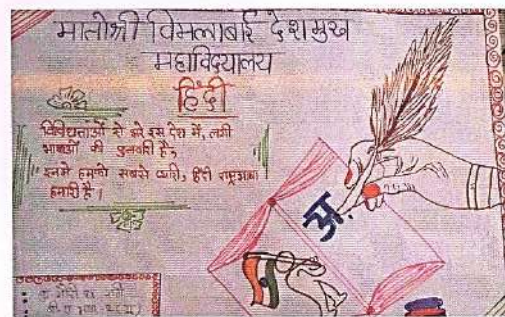 मातोश्री विमलाबाई देशमुख
महाविद्यालय
हिंदी
विविधताओं से भरे इस देश में, लगी
भाषाओं की फुलवारी है,
इनमे हमको सबसे प्यारी, हिंदी राष्ट्रभाषा
हमारी है।
अ